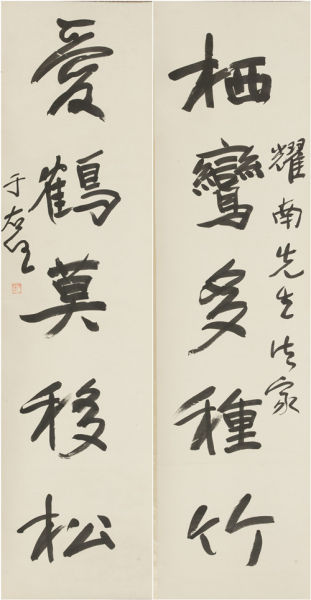 栖鸞多種竹
耀南先生法家
愛鶴莫移松
于右任